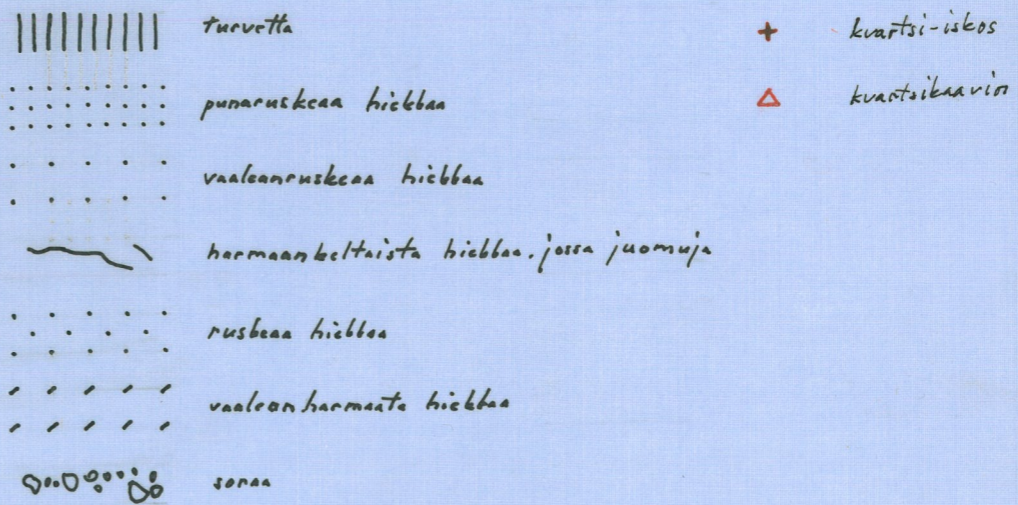 turvetta
punaruskeaa hiekkaa
vaaleanruskeaa hiekkaa
harmaankeltaista hiekkaa, jossa juomuja
ruskeaa hiekkaa
vaaleanharmaata hiekkaa
soraa
kvartsi-iskos
kvartsikaavin